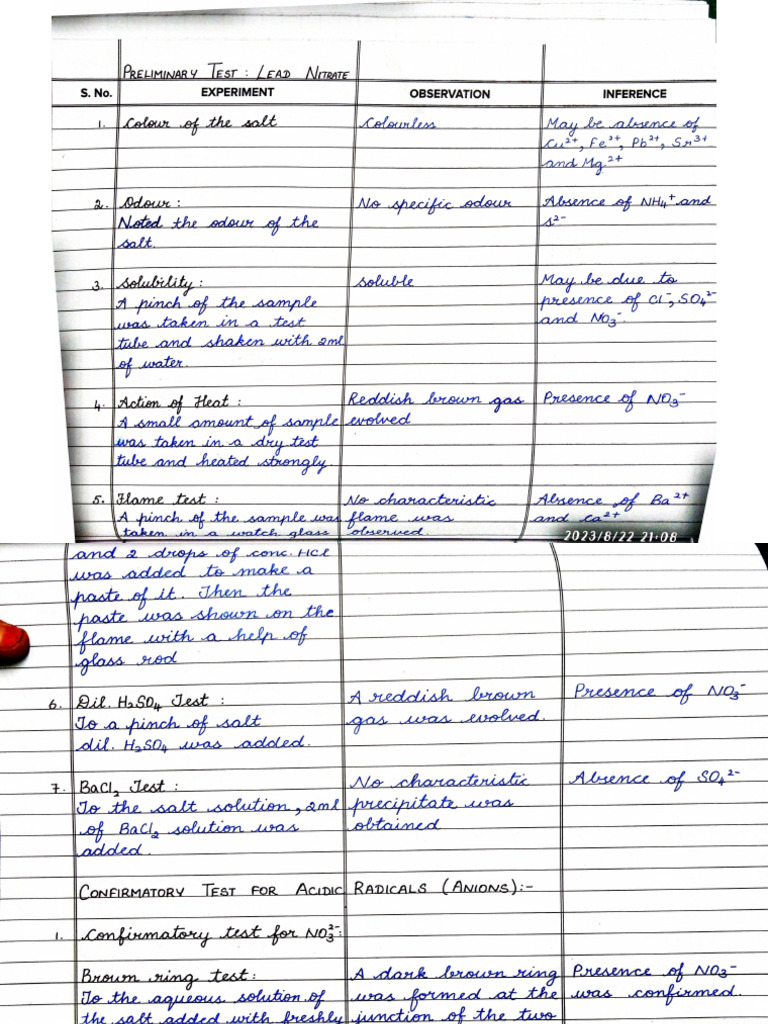 PRELIMINARY TEST : LEAD NITRATE
S. No. EXPERIMENT OBSERVATION INFERENCE
1. Colour of the salt Colourless May be absence of
Cu²⁺, Fe²⁺, Pb²⁺, Sr³⁺
and Mg²⁺
2. Odour : No specific odour Absence of NH₄⁺ and
Noted the odour of the S²⁻
salt.
3. Solubility : soluble May be due to
A pinch of the sample presence of Cl⁻, SO₄²⁻
was taken in a test and NO₃⁻.
tube and shaken with 2ml
of water.
4. Action of Heat : Reddish brown gas Presence of NO₃⁻
A small amount of sample evolved
was taken in a dry test
tube and heated strongly.
5. Flame test : No characteristic Absence of Ba²⁺
A pinch of the sample was flame was and Ca²⁺
taken in a watch glass observed.
2023/8/22 21:08
and 2 drops of conc. HCl
was added to make a
paste of it. Then the
paste was shown on the
flame with a help of
glass rod
6. Dil. H₂SO₄ Test : A reddish brown Presence of NO₃⁻
To a pinch of salt gas was evolved.
dil. H₂SO₄ was added.
7. BaCl₂ Test : No characteristic Absence of SO₄²⁻
To the salt solution, 2ml precipitate was
of BaCl₂ solution was obtained
added.
CONFIRMATORY TEST FOR ACIDIC RADICALS (ANIONS):-
1. Confirmatory test for NO₃²⁻:
Brown ring test : A dark brown ring Presence of NO₃⁻
To the aqueous solution of was formed at the was confirmed.
the salt added with freshly junction of the two